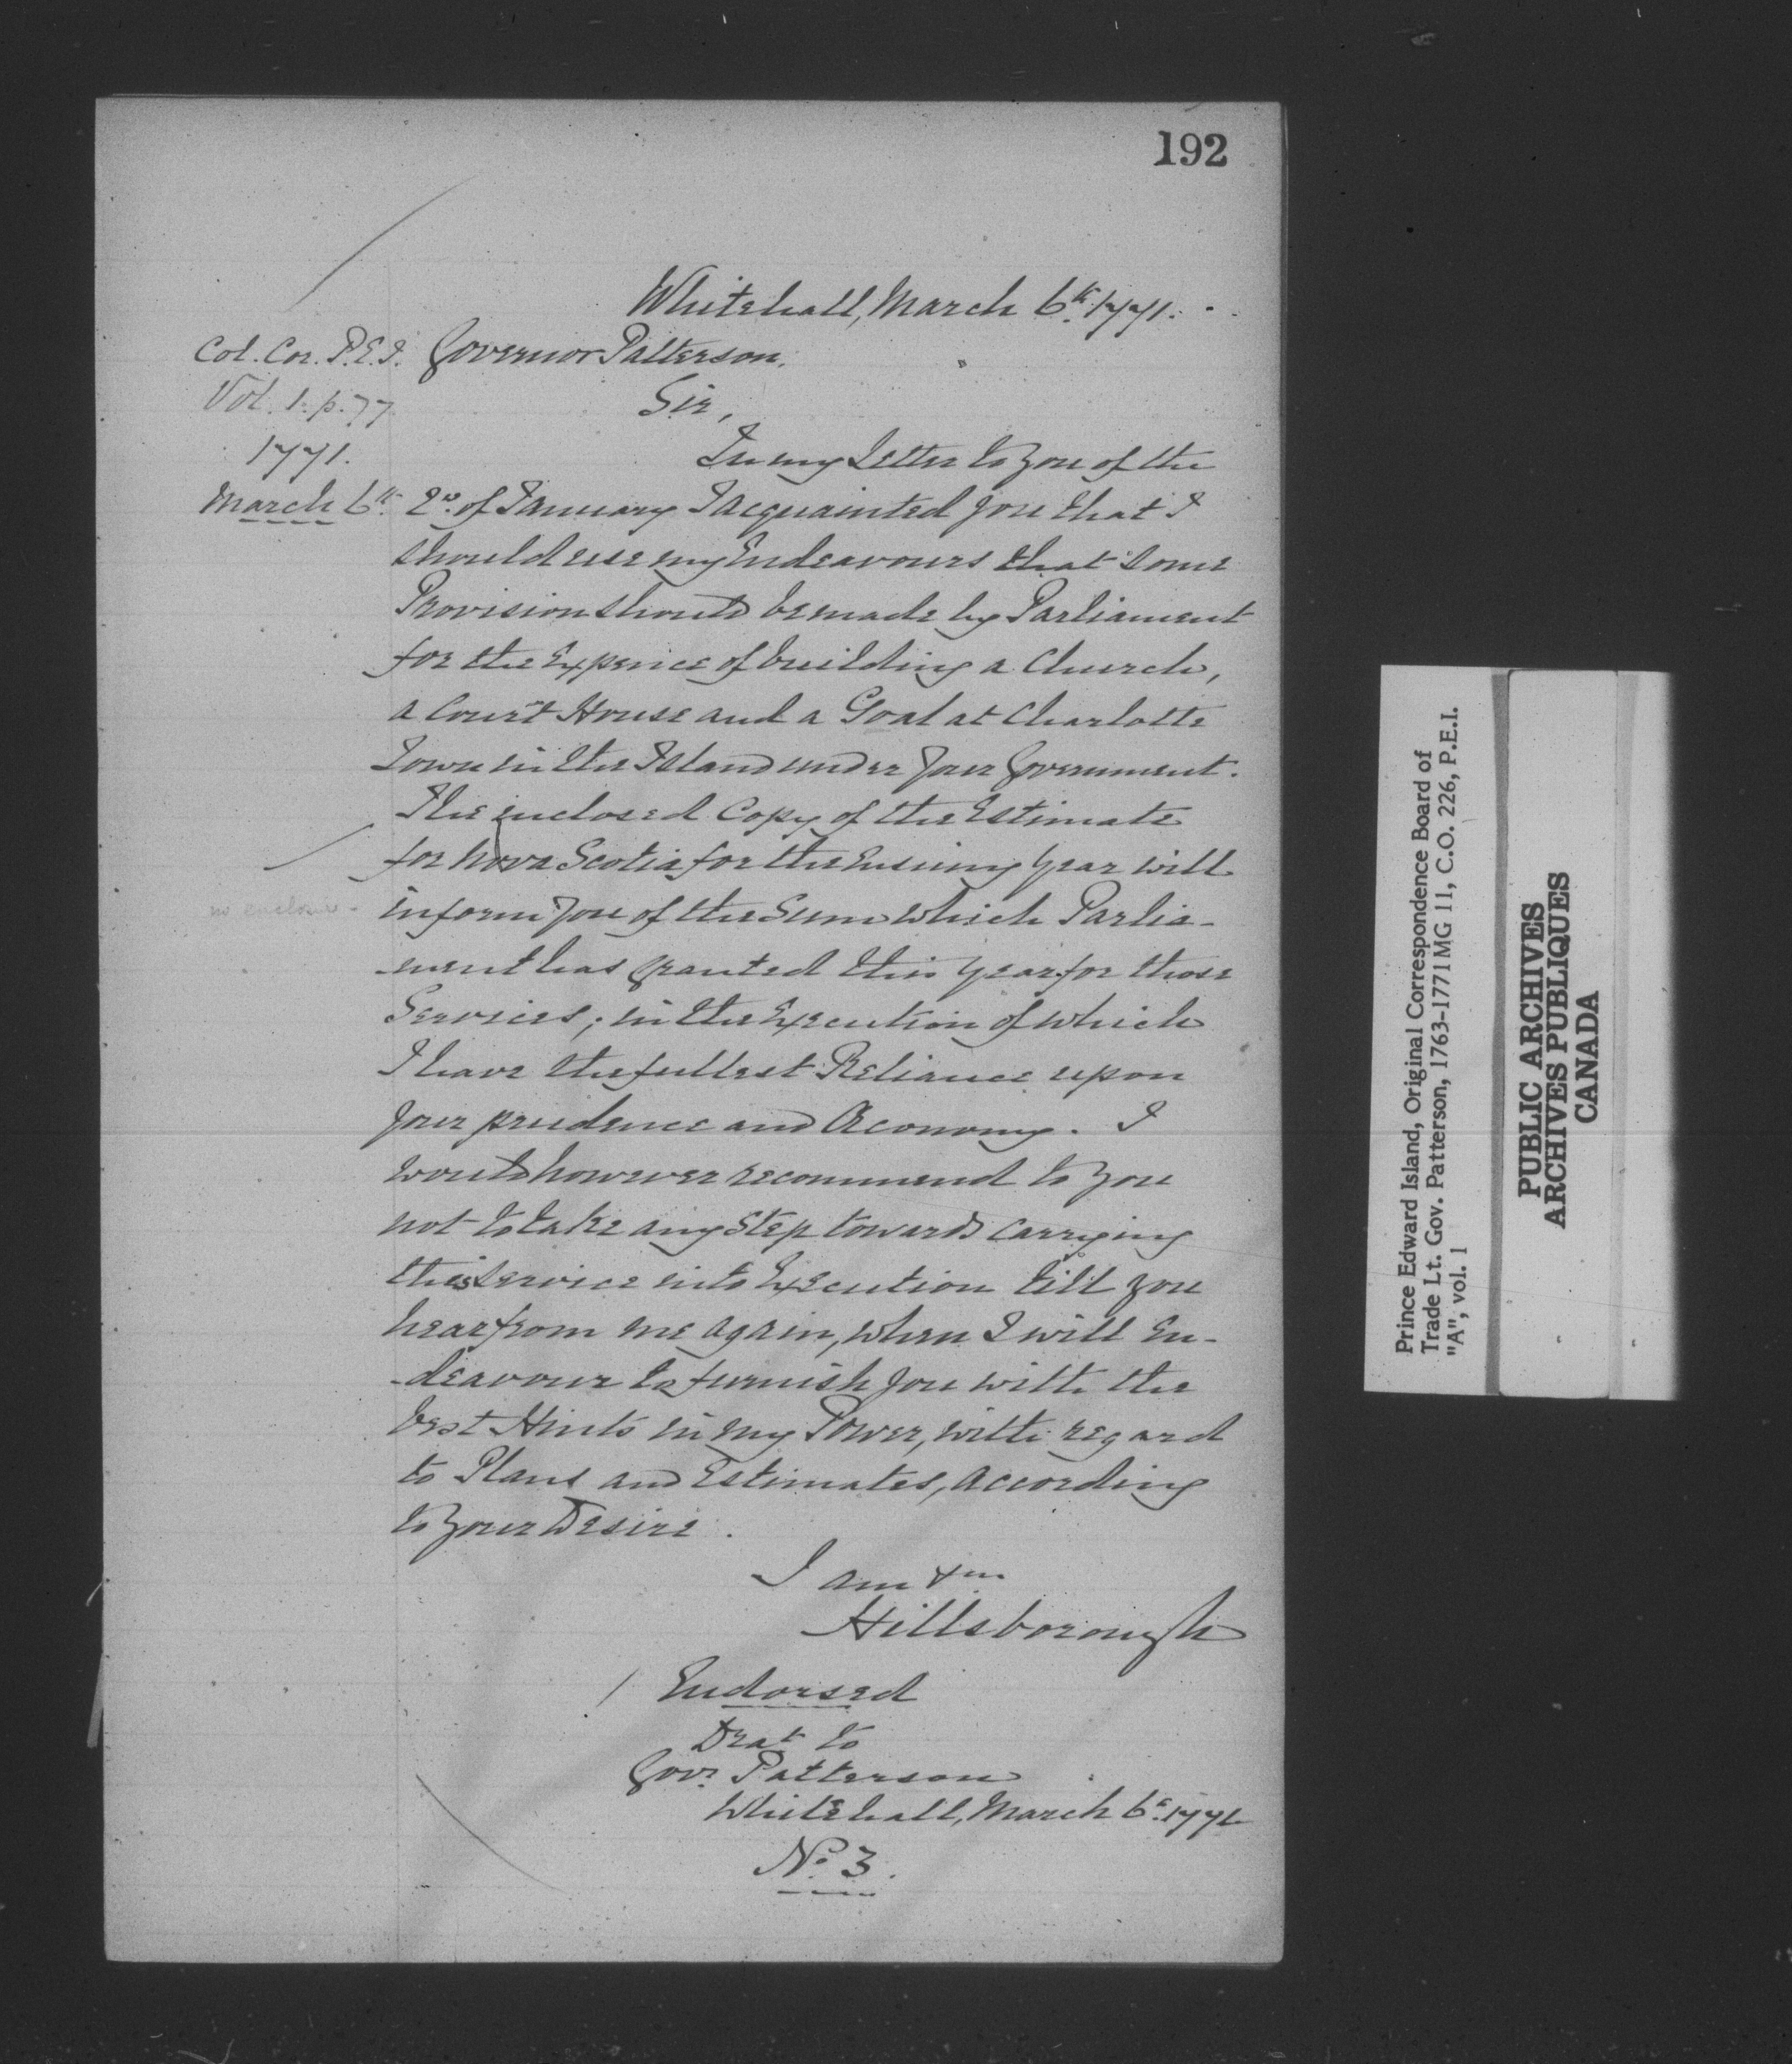 192
Whitehall, March 6th. 1771.
Col. Cor. P.E.I.
Vol. 1. p. 77
1771.
March 6th.
Governor Patterson.
Sir,
In my Letter to you of the
2d. of January I acquainted you that I
should use my Endeavours that some
Provision should be made by Parliament
for the Expence of building a Church,
a Court House and a Goal at Charlotte
Town in the Island under your Government.
The enclosed Copy of the Estimate
for Nova Scotia for the Ensuing Year will
no enclosure -
inform you of the Sum which Parlia-
-ment has granted this Year for those
Services; in the Execution of which
I have the fullest Reliance upon
your prudence and Œconomy. I
would however recommend to you
not to take any Step towards carrying
this Service into Execution till you
hear from me again, when I will En-
-deavour to furnish you with the
best Hints in my Power, with regard
to Plans and Estimates, according
to your Desire.
I am &ca
Hillsborough
Endorsed
Drat to
Govr. Patterson
Whitehall, March 6th. 1771
No. 3.
Prince Edward Island, Original Correspondence Board of
Trade Lt. Gov. Patterson, 1763-1771 MG 11, C.O. 226, P.E.I.
"A", vol. 1
PUBLIC ARCHIVES
ARCHIVES PUBLIQUES
CANADA